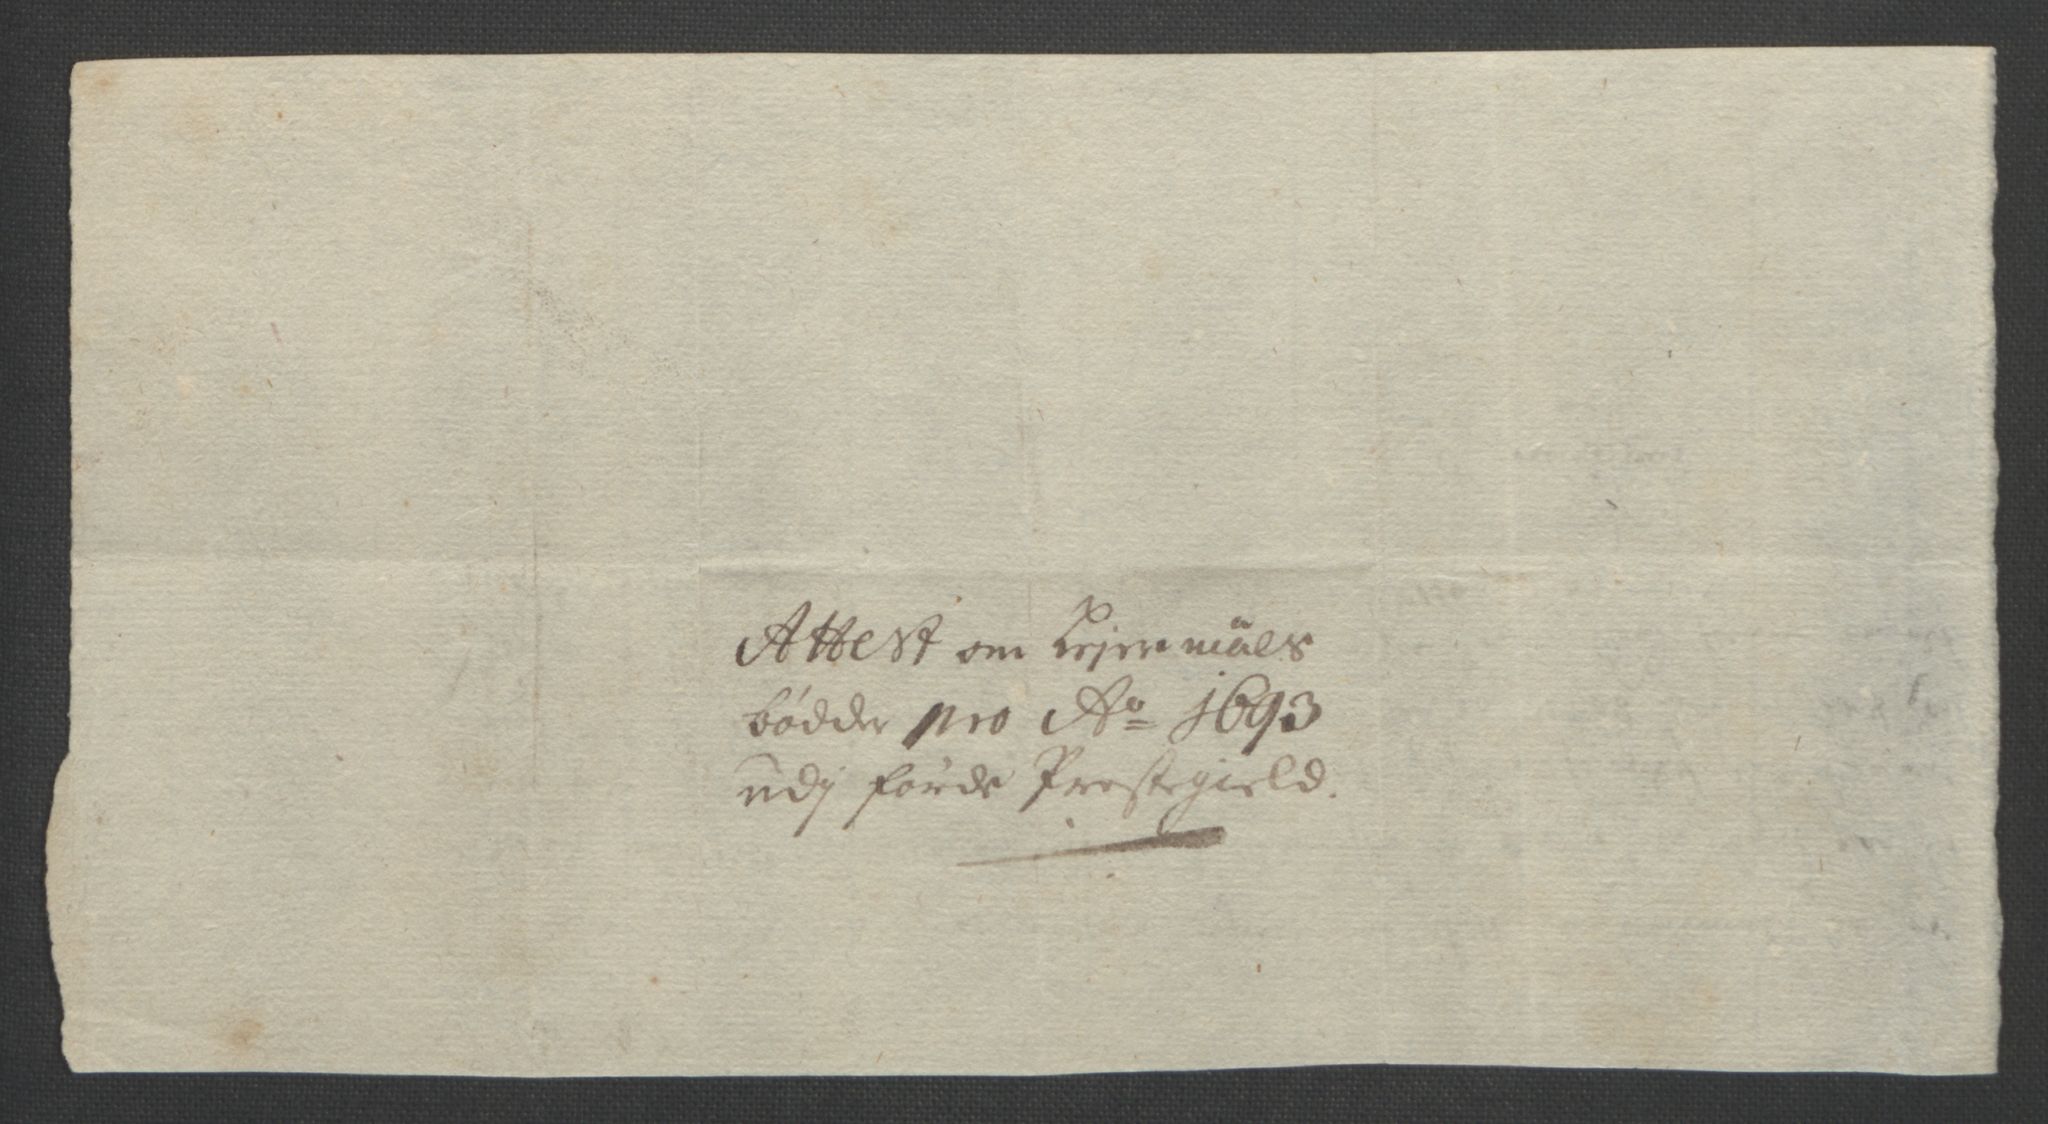 Attest om Lejermåls
bødder pro Ao 1693
udj førde Prestegield.